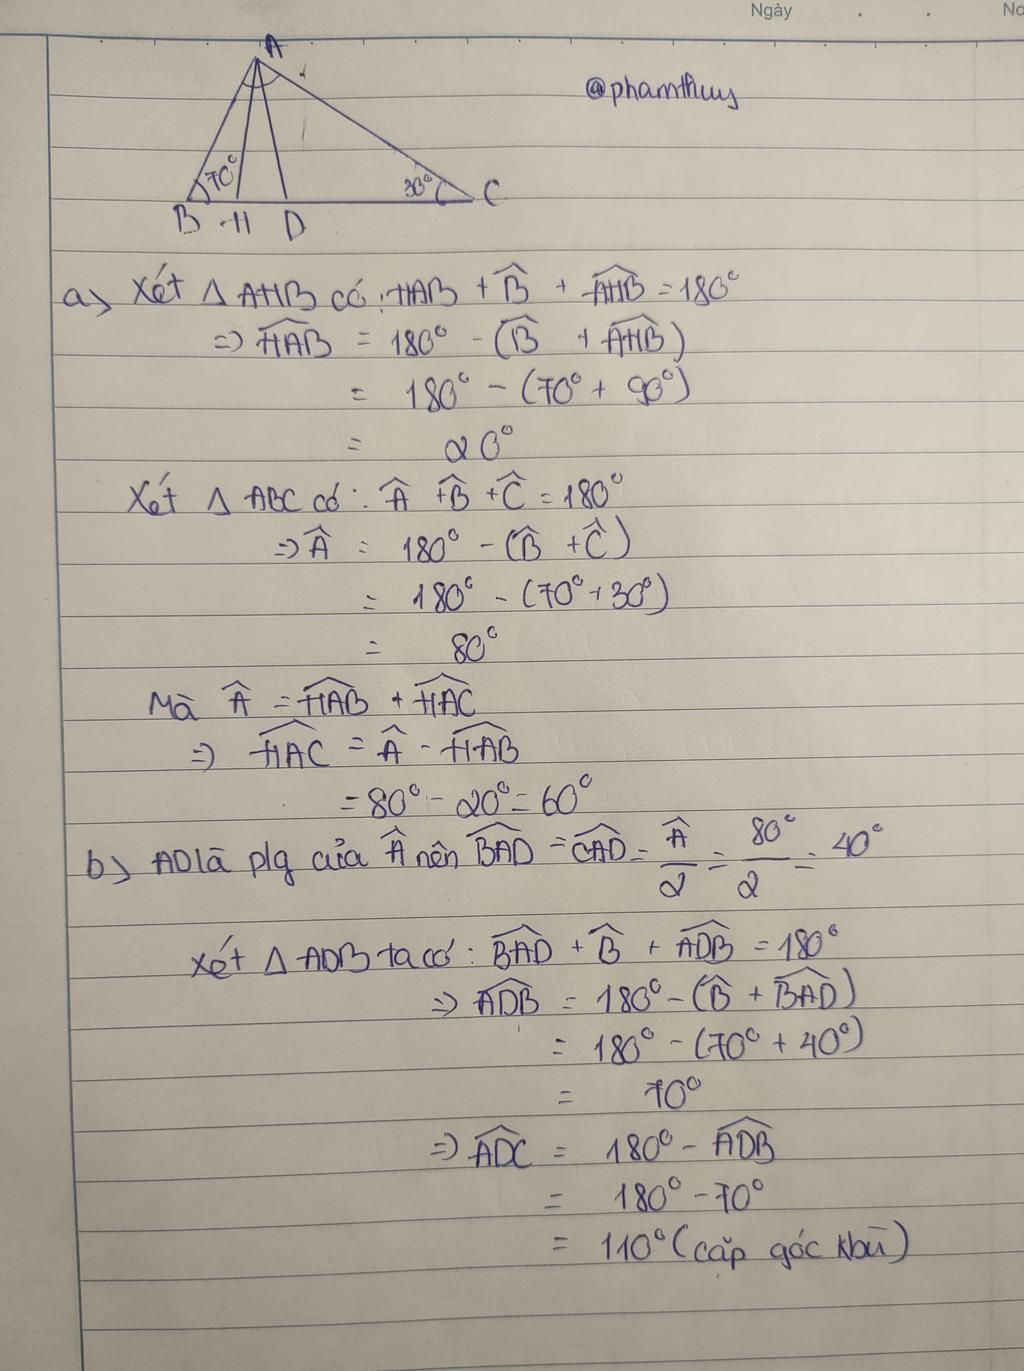 Ngày . . No
@phamthuy
A
70°
30°
B H D C
a) Xét Δ AHB có: HAB + B̂ + AHB̂ = 180°
=> HAB̂ = 180° - (B̂ + AHB̂)
= 180° - (70° + 90°)
= 20°
Xét Δ ABC có: Â + B̂ + Ĉ = 180°
=> Â = 180° - (B̂ + Ĉ)
= 180° - (70° + 30°)
= 80°
Mà Â = HAB̂ + HAĈ
=> HAĈ = Â - HAB̂
= 80° - 20° = 60°
b) AD là p/g của Â nên BAD̂ = CAD̂ = Â/2 = 80°/2 = 40°
Xét Δ ADB ta có: BAD̂ + B̂ + ADB̂ = 180°
=> ADB̂ = 180° - (B̂ + BAD̂)
= 180° - (70° + 40°)
= 70°
=> ADĈ = 180° - ADB̂
= 180° - 70°
= 110° (cặp góc kbù)